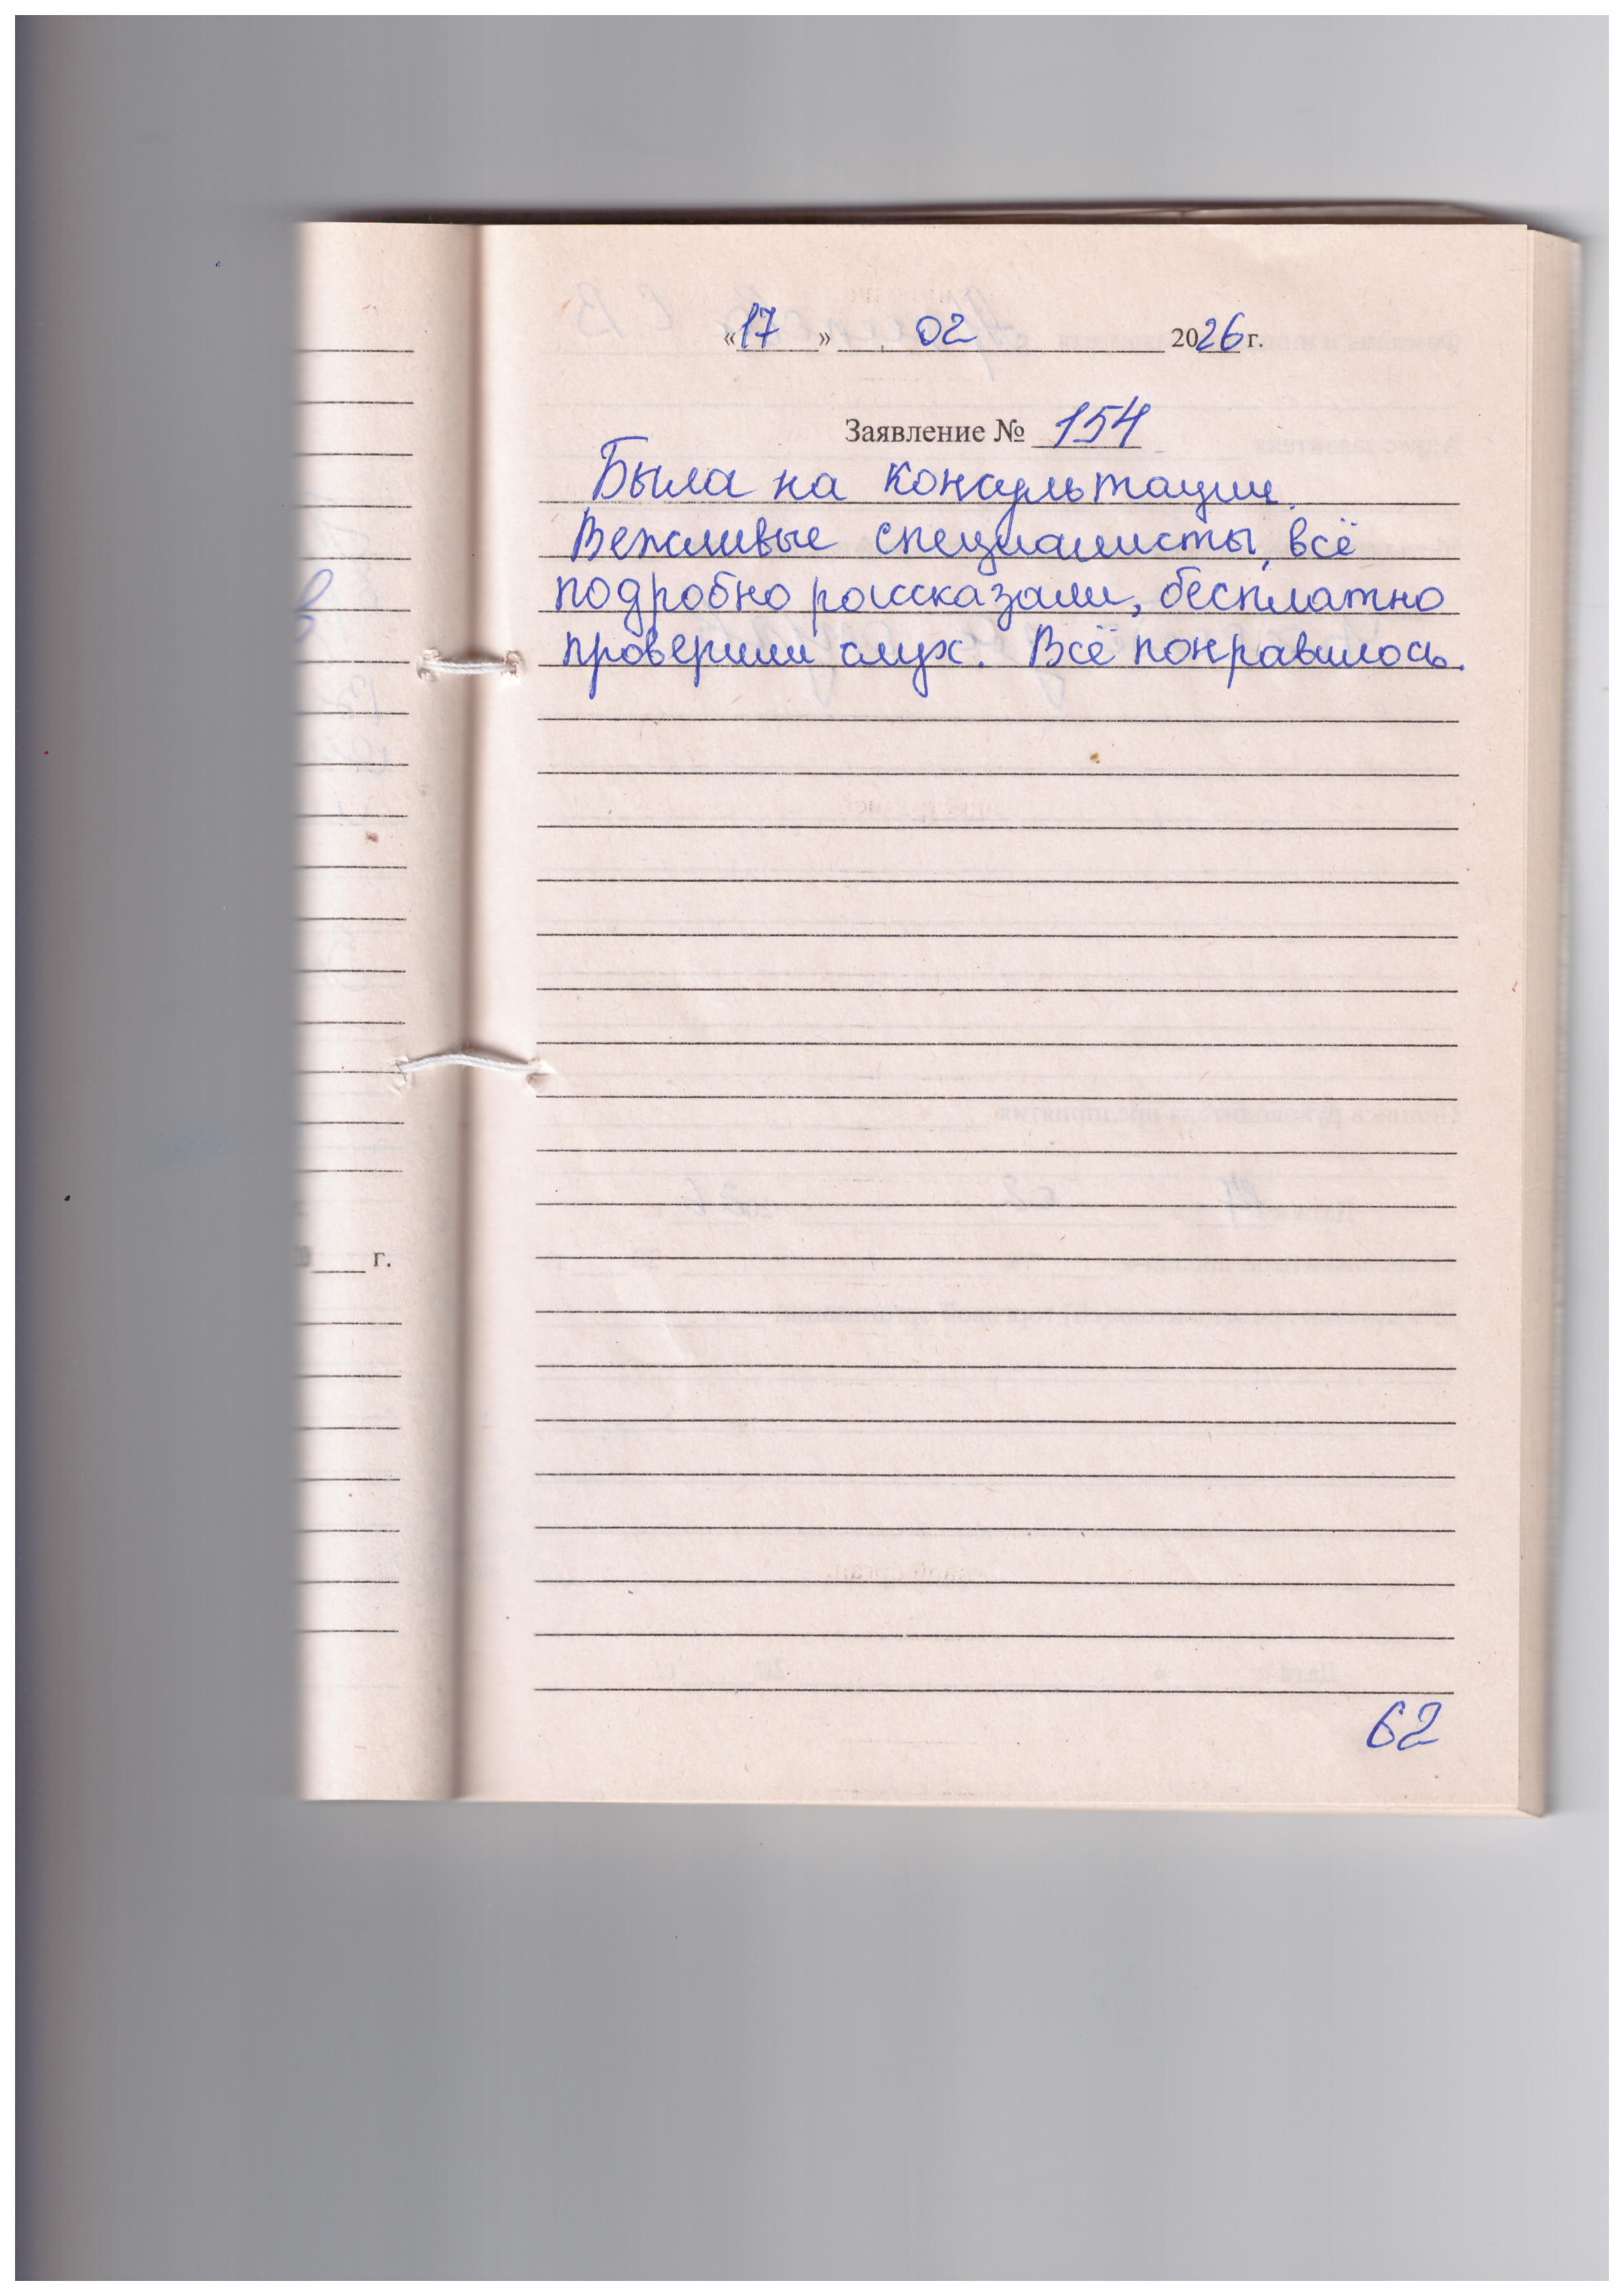 «17» 02 2026 г.
Заявление № 154
Была на консультации.
Вежливые специалисты, всё
подробно рассказали, бесплатно
проверили слух. Всё понравилось.
г.
62